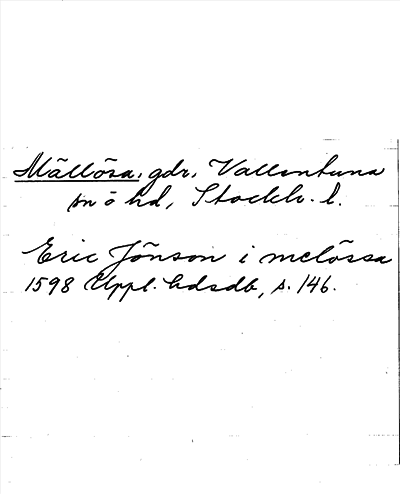 Mällösa, gdr, Vallentuna
sn ö hd, Stockh. l.
Eric Jönson i melössa
1598 Uppl. hdsdb, s. 146.